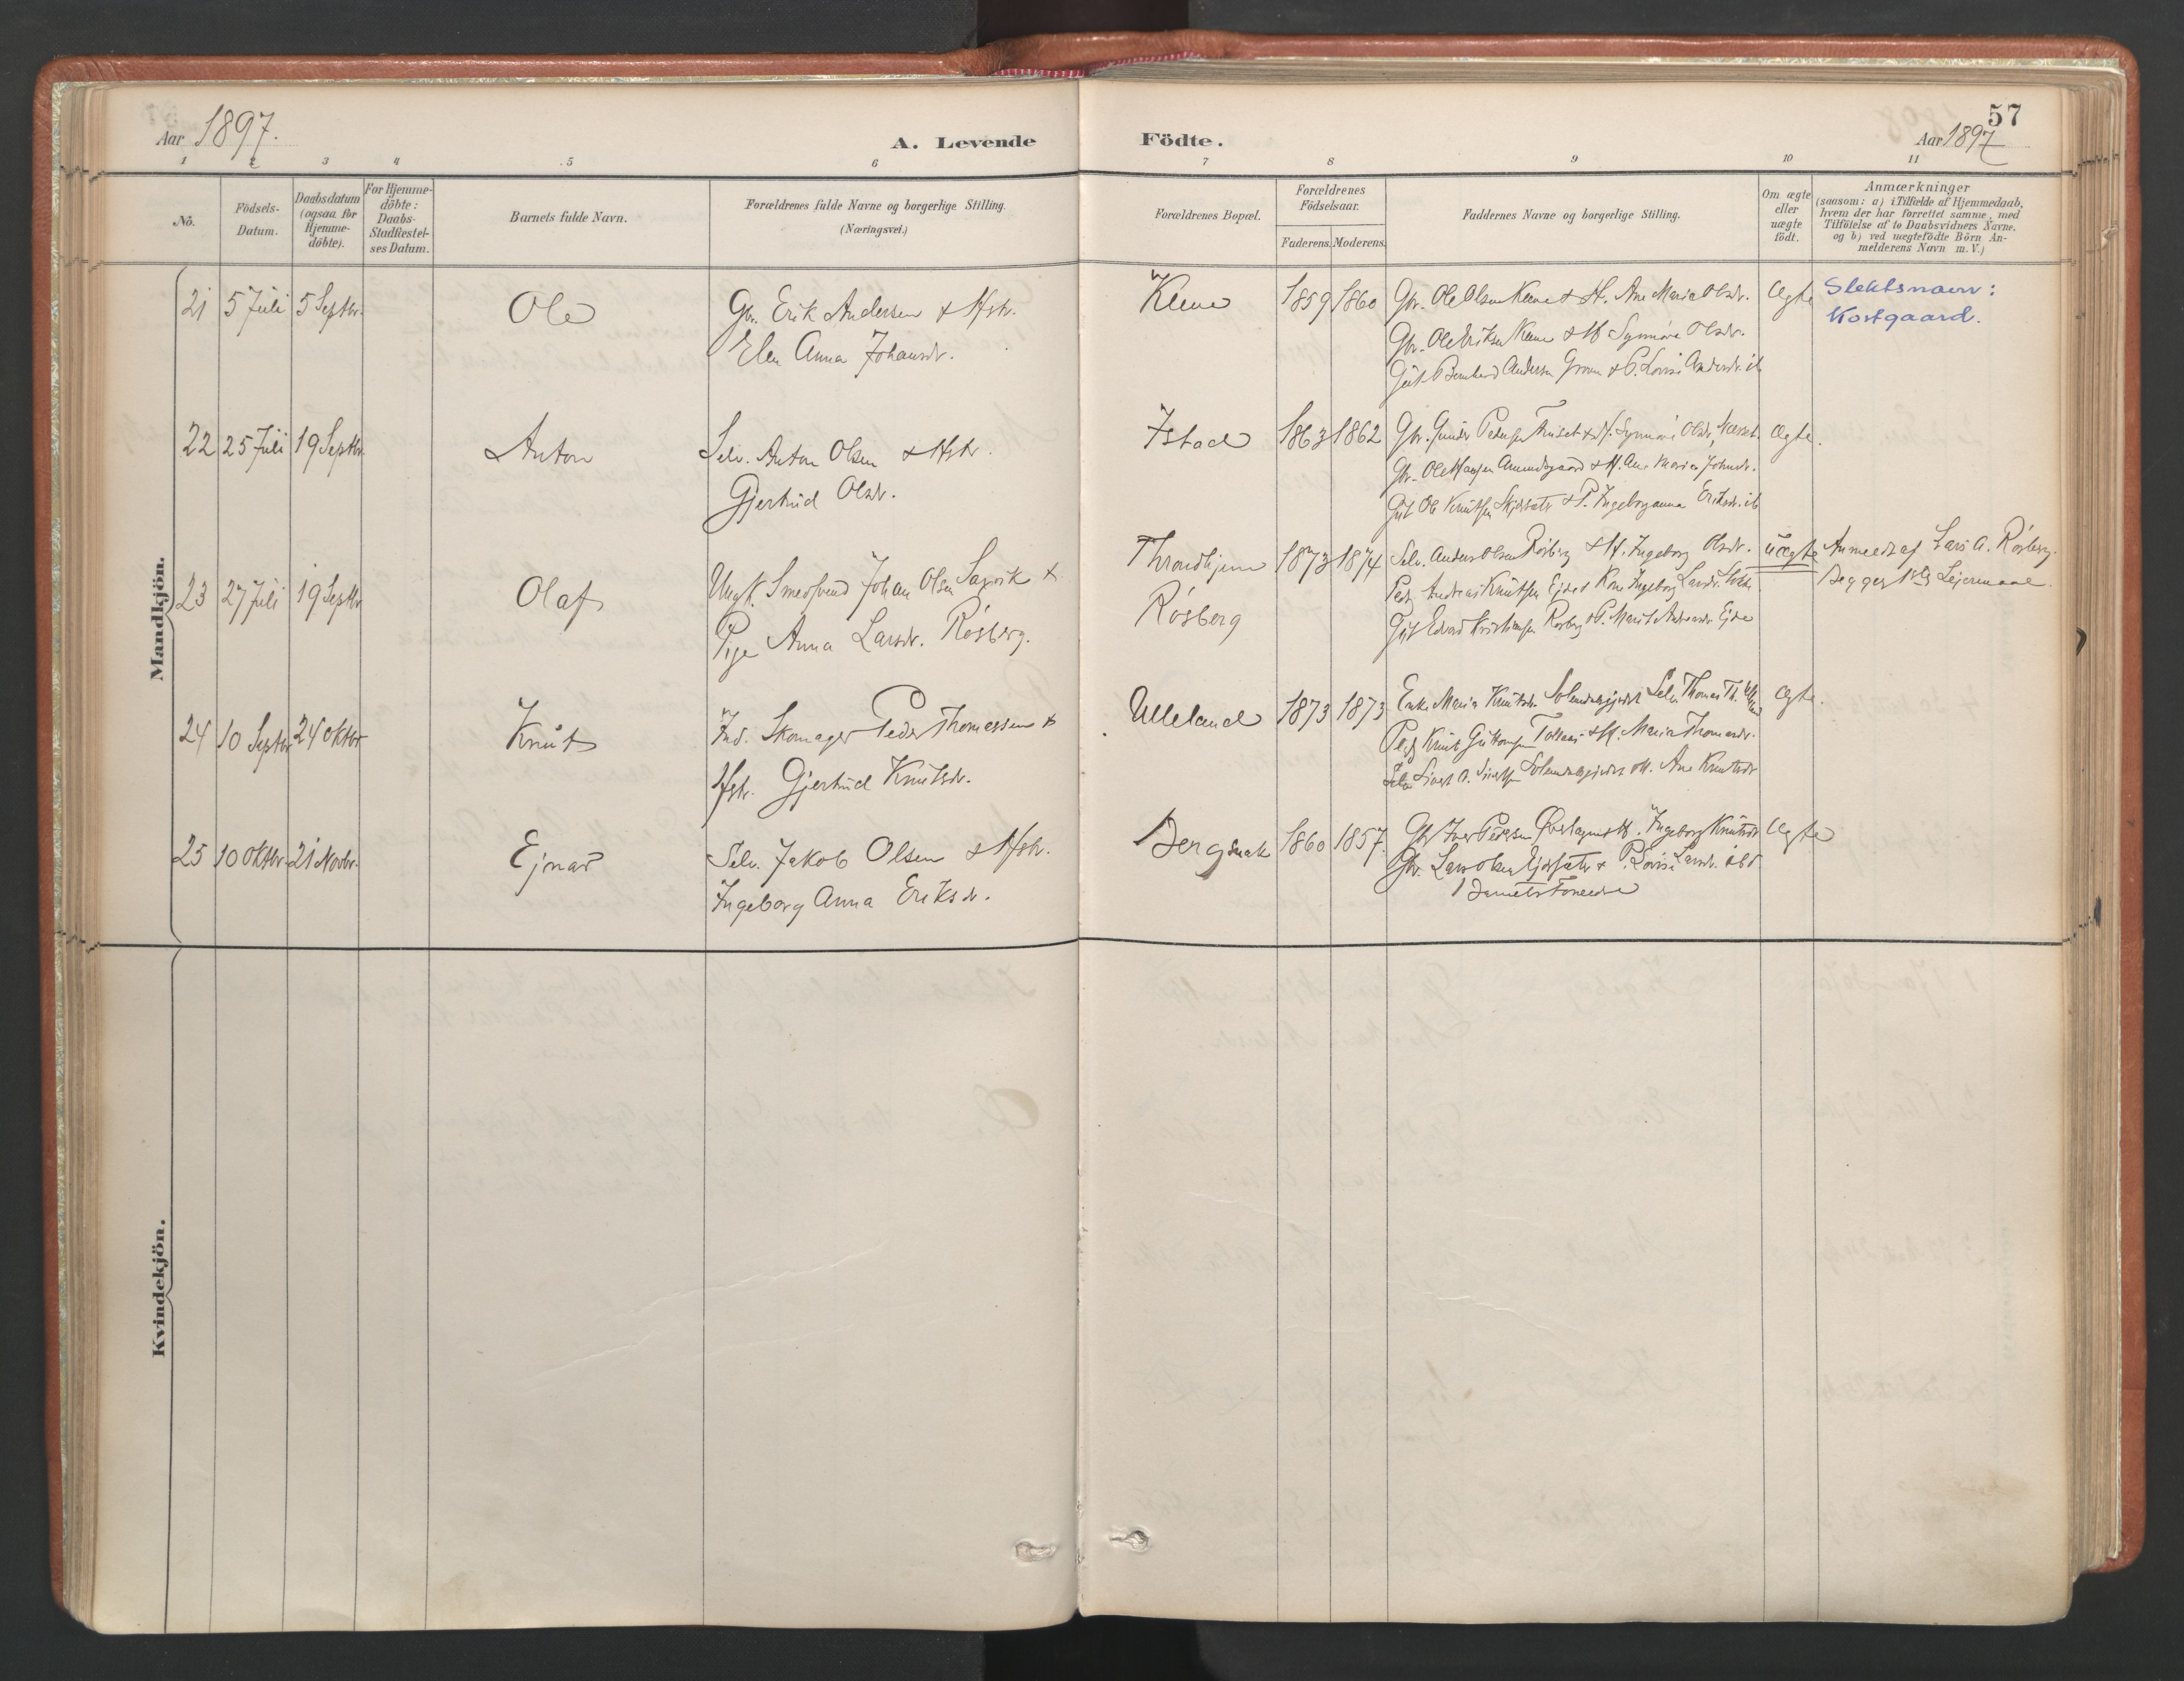 Aar 1897.
A. Levende Födte.
57
Aar 1897
1 2 3 4 5 6 7 8 9 10 11
No.
Födsels-Datum.
Daabsdatum (ogsaa for Hjemme-döbte).
For Hjemme-döbte: Daabs-Stadfestel-ses Datum.
Barnets fulde Navn.
Forældrenes fulde Navne og borgerlige Stilling. (Næringsvei.)
Forældrenes Bopæl.
Forældrenes Födselsaar.
Faderens. Moderens.
Faddernes Navne og borgerlige Stilling.
Om ægte eller uægte födt.
Anmærkninger
(saasom: a) i Tilfælde af Hjemmedaab,
hvem der har forrettet samme, med
Tilföielse af to Daabsvidners Navne.
og b) ved uægtefödte Börn An-
melderens Navn m. V.)
Mandkjön.
21 5 Juli 5 Septbr. Ole
Gbr. Erik Andersen & Hstr.
Elen Anna Johansdr.
Kleve 1859 1860
Gbr. Ole Olsen Kleve & H. Ane Maria Olsdr.
Gbr. Ole Eriksen Kleve & H Synnöve Olsdr.
Gut Bernhard Andersen & P. Lovise Andersdr. ib
Ægte
Slektsnavn:
Kostgaard.
22 25 Juli 19 Septbr. Anton
Selv. Anton Olsen & Hstr.
Gjertrud Olsdr.
Istad 1863 1862
Gbr. Gunder Pedersen & H. Synnöve Olsdr.
Gbr. Ole Hansen & H. Ane Maria Johnsdr.
Gut Ole Knutsen & P. Ingeboranna Eriksdr. ib
Ægte.
23 27 Juli 19 Septbr Olaf
Ungk. Smedsvend Johan Olsen &
Pige Anna Larsdr. Rösberg.
Throndhjem
Rösberg
1873 1874
Selv. Anders Olsen Rösberg & H. Ingeborg Olsdr.
Andreas Knutsen Eide & Kone Ingeborg Larsdr.
Gut Edvard Kristiansen Rösberg & P. Marit Andreasdr Eide
uægte
Anmeldt af Lars A. Rösberg.
Begges 1ste Lejermaal.
24 10 Septbr 24 Oktbr Knut
Ind. Skomager Peder Thomassen &
Hstr. Gjertrud Knutsdr.
Ulleland 1873 1873
Enke Maria Knutsdr. Selv. Thomas Th.
Knut Guttormsen & H. Maria Thomasdr.
Sivert A. Sivertsen & H. Ane Knutsdr
Ægte.
25 10 Oktbr. 21 Novbr. Ejnar
Selv. Jakob Olsen & Hstr.
Ingeborg Anna Eriksdr.
Bergsnak 1860 1857.
Gbr Iver Pedersen & H. Ingeborg Knutsdr
Gbr. Lars Olsen & P. Lovise Larsdr. ibd
Barnets Forældre
Ægte
Kvindekjön.